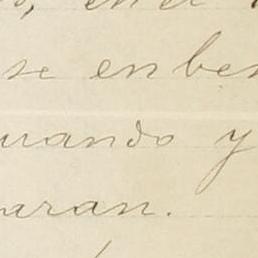 en el
se enben
uando y
aran.